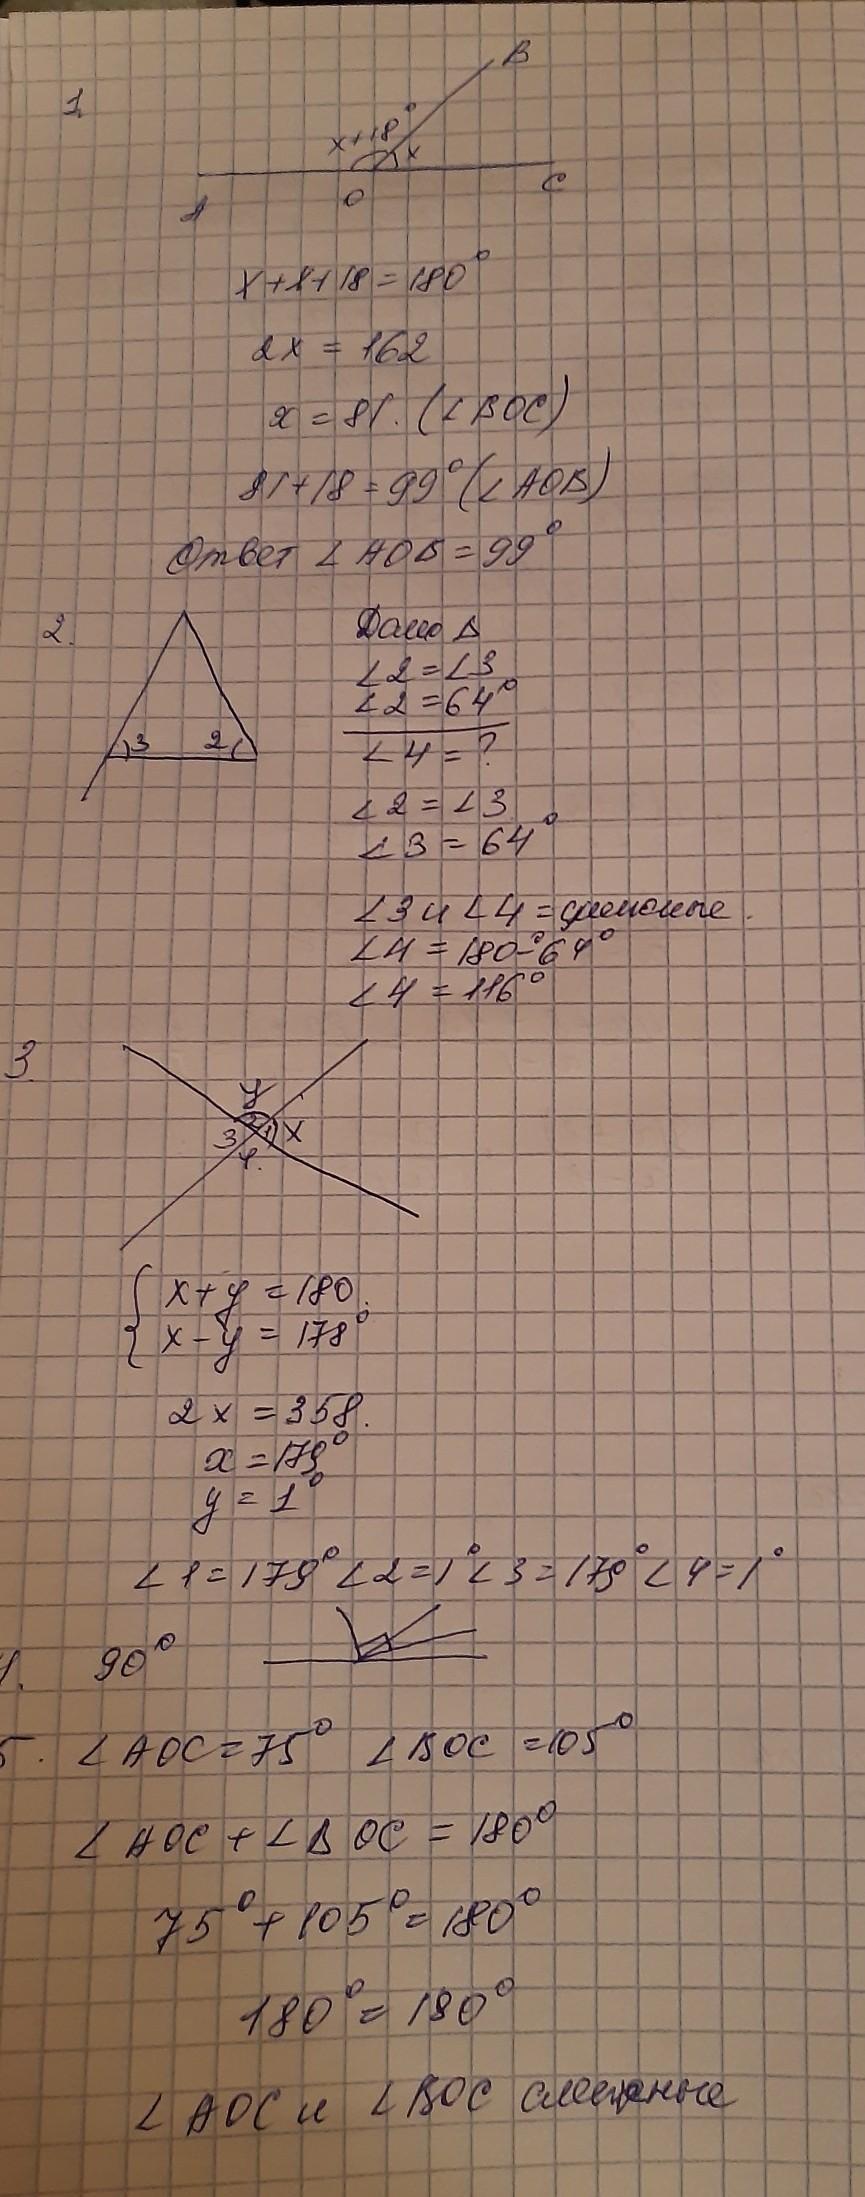 1.
B
x+18°
x
A
O
C
x+x+18=180°
2x = 162
x = 81. (∠BOC)
81+18=99° (∠AOB)
Ответ ∠AOB=99°
2.
3 2
Дано Δ
∠2=∠3
∠2=64°
∠4=?
∠2=∠3
∠3=64°
∠3 и ∠4 = смежные.
∠4=180°-64°
∠4=116°
3
y
2
3 1 x
4.
{ x+y=180.
x-y=178°
2x=358.
x=179°
y=1°
∠1=179° ∠2=1° ∠3=179° ∠4=1°
4. 90°
5. ∠AOC=75° ∠BOC=105°
∠AOC+∠BOC=180°
75°+105°=180°
180°=180°
∠AOC и ∠BOC смежные